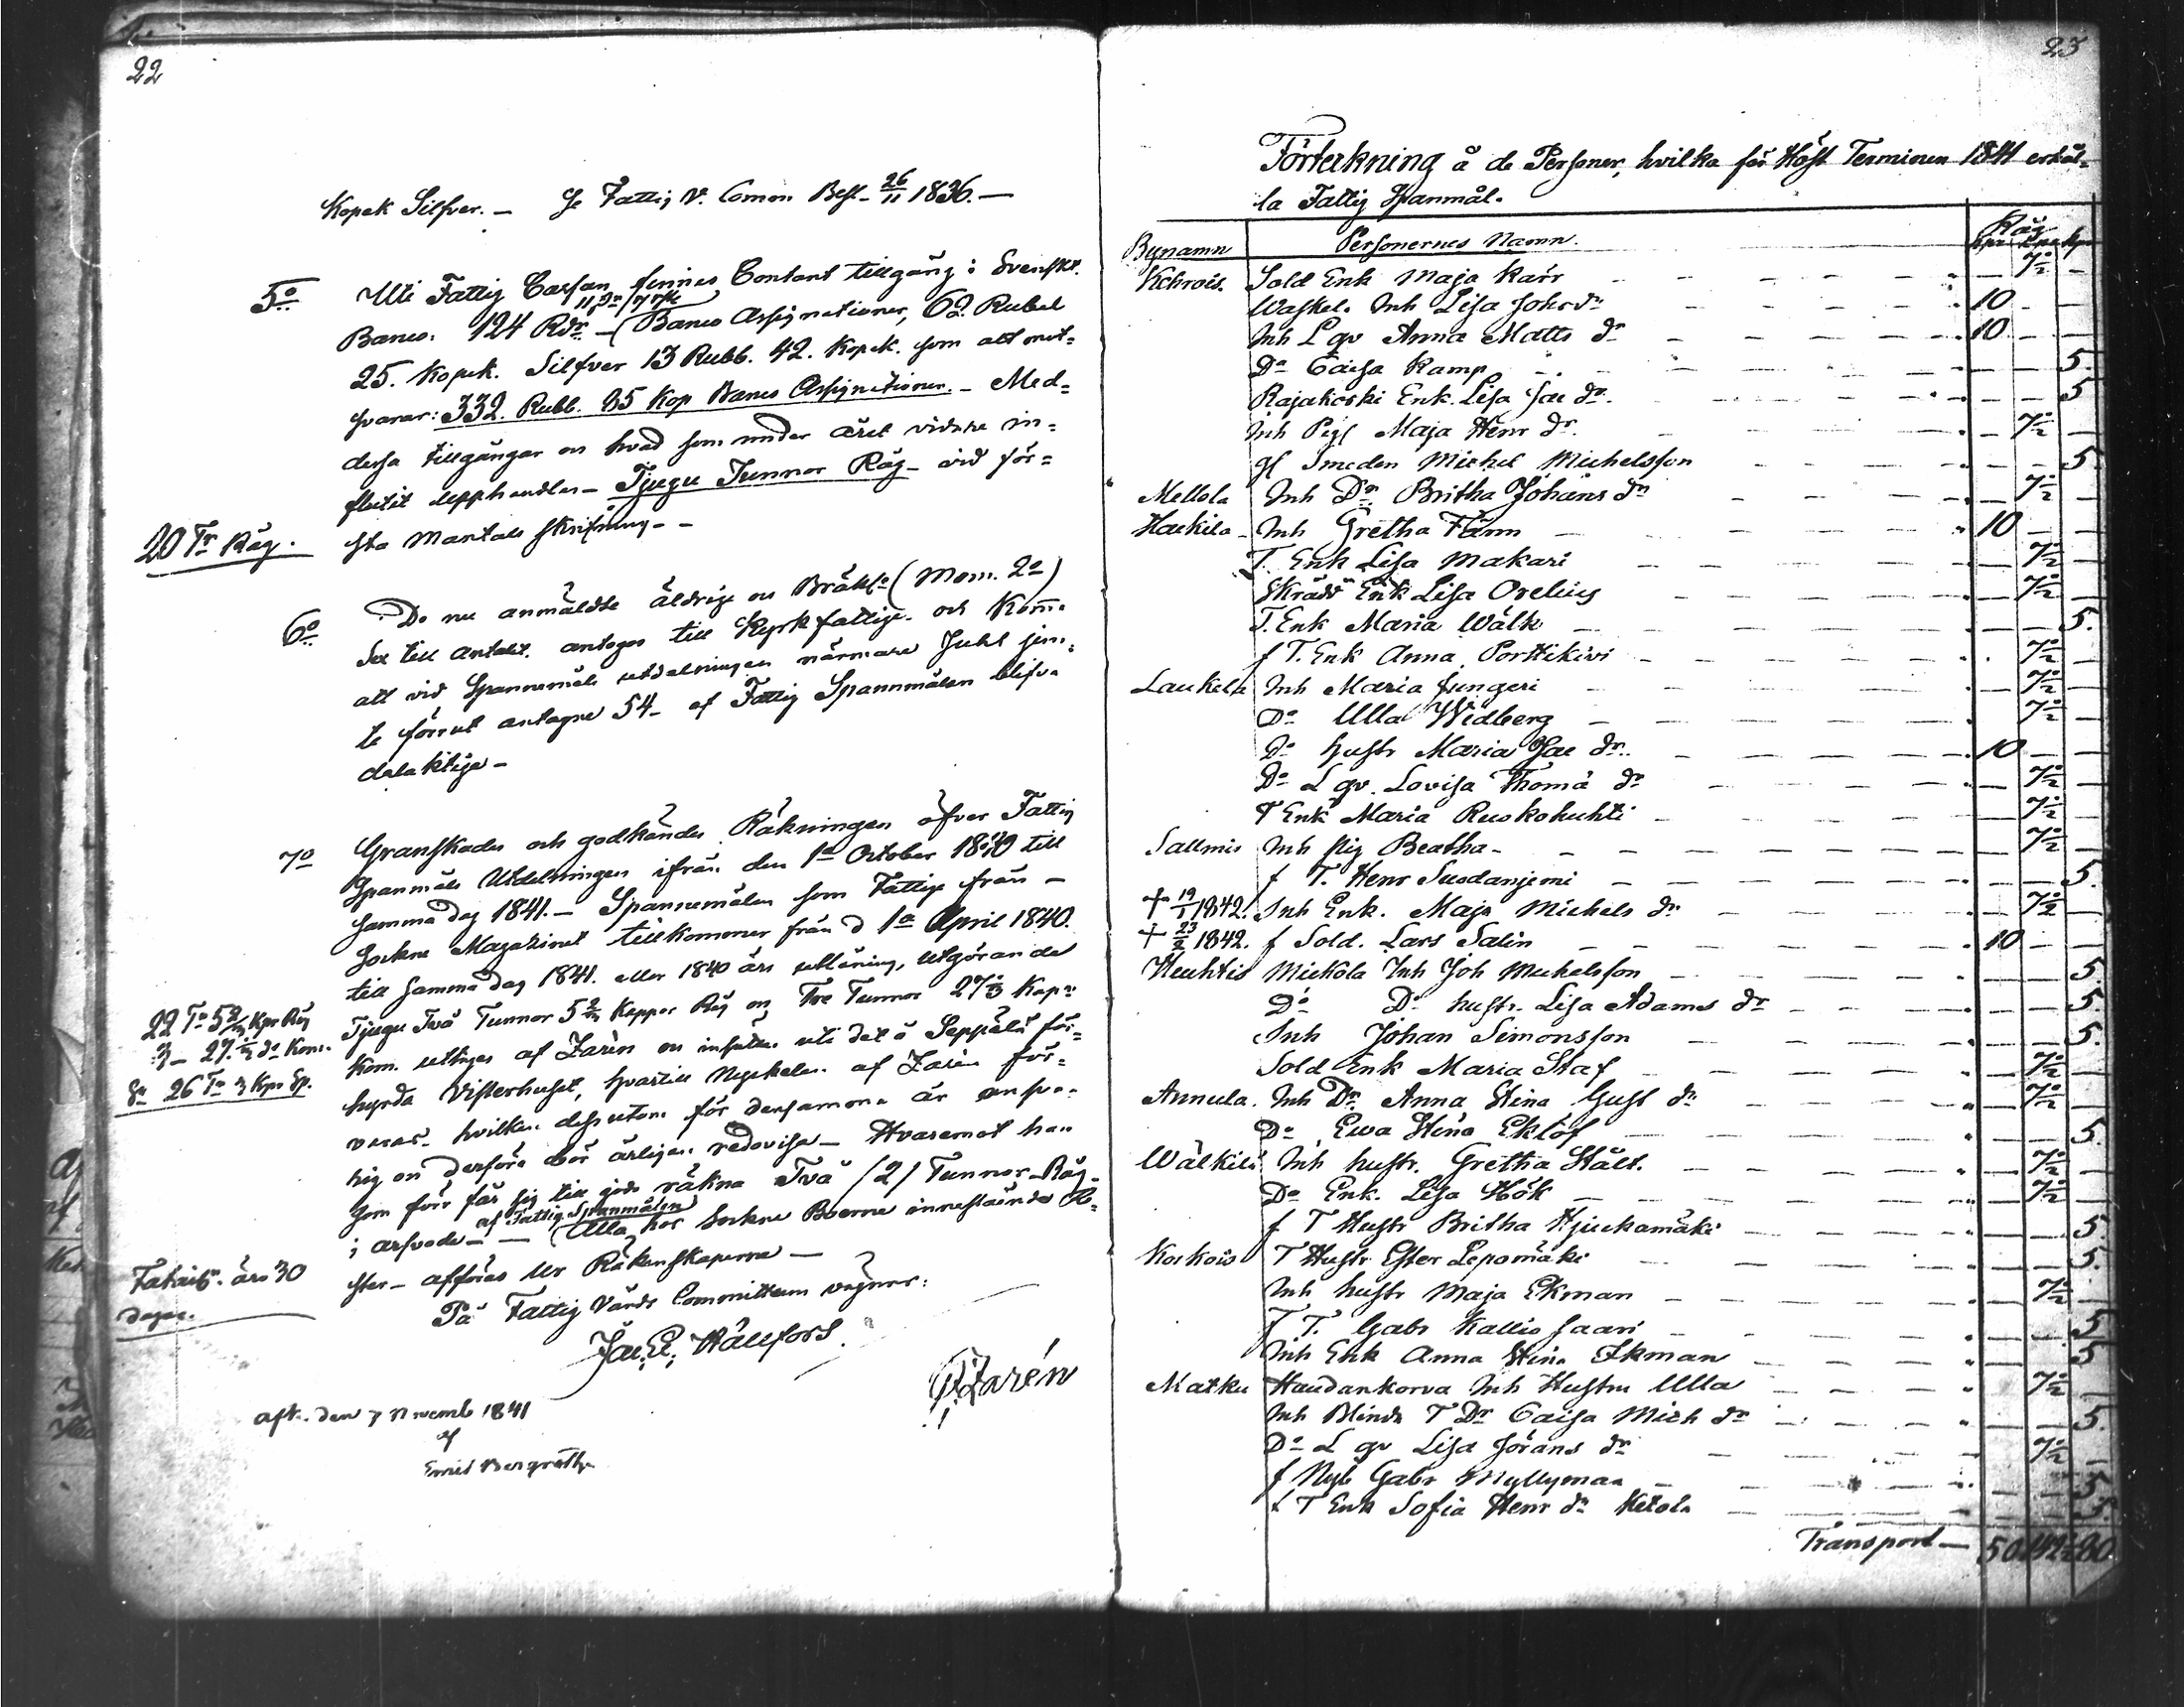 22
Kopek Silfver. — Se Fattig V. Comm. Besl. 26/11 1836. —
5o Uti Fattig Cassan finnes Contant tillgång i Svenskt.
Banco. 124 Rdr — (Banco Assignationer, 62 Rubel
25. Kopek. Silfver 13 Rubb. 42. Kopek. som allt mot=
svarar: 332. Rubb. 85 Kop Banco Assignationer. — Med=
dessa tillgångar och hvad som under året vidare in=
flutit upphandlas — Tjugu Tunnor Råg — vid för=
20 Tr Råg.
sta Mantals Skrifning. —
6o De nu anmäldte åldrige och Bräkl. (Mom. 2o)
till antalet. antoges till Kyrkfattige. och Komma
att vid Spannemåls utdelningen närmare Juhl jem=
te förut antagne 54 — af Fattig Spannmålen blifva
delaktige —
7o Granskades och godkändes Räkningen öfver Fattig
Spanmåls Utdelningen ifrån den 1a October 1840 till
samma dag 1841. — Spannemålen som Fattige från —
Sockne Magazinet tillkommer från d 1a April 1840.
till samma dag 1841. eller 1840 års utlåning, utgörande
22 Tr 5 Kpr Råg
Tjugu Två Tunnor 5 Kappor Råg och Tre Tunnor 27 Kapr
3 — 27. do Korn.
Korn. uttages af Zarèn och insättes uti det å Seppälä för=
Sa 26 Tr 3 Kpr Sp.
hyrda Visterhuset, hvartill Nyckelen af Zarèn för=
varas — hvilken dessutom för densamma är ansva=
rig och derföre bör årligen redovisa — Hvaremot han
som förr får sig till godo räkna Två /2/ Tunnor Råg
af Fattig Spanmålen
i arfvode — — (Alla hos Sockne Boerne innestående Re=
Fataburs. års 30
dagar.
ster — afföras ur Räkenskaperna —
På Fattig Vårds Committeens vägnar:
Jac. E. Hällfors
Zarén
aft. den 7 Novemb 1841
af
Emil Bergroth
23
Förteckning å de Personer, hvilka för Höst Terminen 1841 erhål=
la Fattig Spanmål.
Råg
Bynamn Personernes Namn. Kpr Kpr Kpr
Kehrois. Sold Enk Maja Karr — 7½ —
Waskel. Inh Lisa Johsdr 10 — —
Inh L qv Anna Matts dr 10 — —
Do Caisa Kamp — — 5.
Rajakoski Enk. Lisa Jac dr. — — 5
Inh Pig Maja Henr dr. — 7½ —
gl Smeden Michel Michelsson — — 5
Mellola Inh Dr Britha Johans dr — 7½ —
Haukila Inh Gretha Fänn 10 — —
T. Enk Lisa Makari — 7½ —
Skrädd Enk Lisa Orelius — 7½ —
T. Enk Maria Wälk — — 5.
f T. Enk Anna Porttikivi . 7½ —
Laukela Inh Maria Jungeri — 7½ —
Do Ulla Widberg — 7½ —
Do hustr Maria Jac dr. 10 — —
Do L qv. Lovisa Thoma dr — 7½ —
T Enk Maria Ruokohuhti — 7½ —
Sallmis Inh pig Beatha — 7½ —
f T. Henr Suodanjemi — — 5.
† 19/1 1842. Inh Enk. Maja Michels dr — 7½ —
† 23/2 1842. f Sold. Lars Salin 10 — —
Huhtis Mickola Inh Joh Michelsson — — 5.
Do Do hustr. Lisa Adams dr — — 5.
Inh Johan Simonsson — — 5.
Sold Enk Maria Staf — 7½ —
Annula. Inh Dr Anna Stina Gust dr — 7½ —
Do Ewa Stina Eklöf — — 5.
Wälkilä Inh hustr. Gretha Stält. — 7½ —
Do Enk. Lisa Hök — 7½ —
f T Hustr Britha Hjiukamäki — — 5.
Koskois T Hustr Ester Lepomäki — — 5.
Inh hustr Maja Ekman — 7½ —
f T. Gabr Kallio Jaari — — 5
Inh Enk Anna Stina Ekman — — 5
Matku Haudankorva Inh Hustru Ulla — 7½ —
Inh Blinda T Dr Caisa Mich dr — — 5.
Do L qv Lisa Görans dr — 7½ —
f Nyb Gabr Myllymaa — — 5.
f T Enk Sofia Henr dr Ketola — — 5.
Transport — 50. 142½ 80.